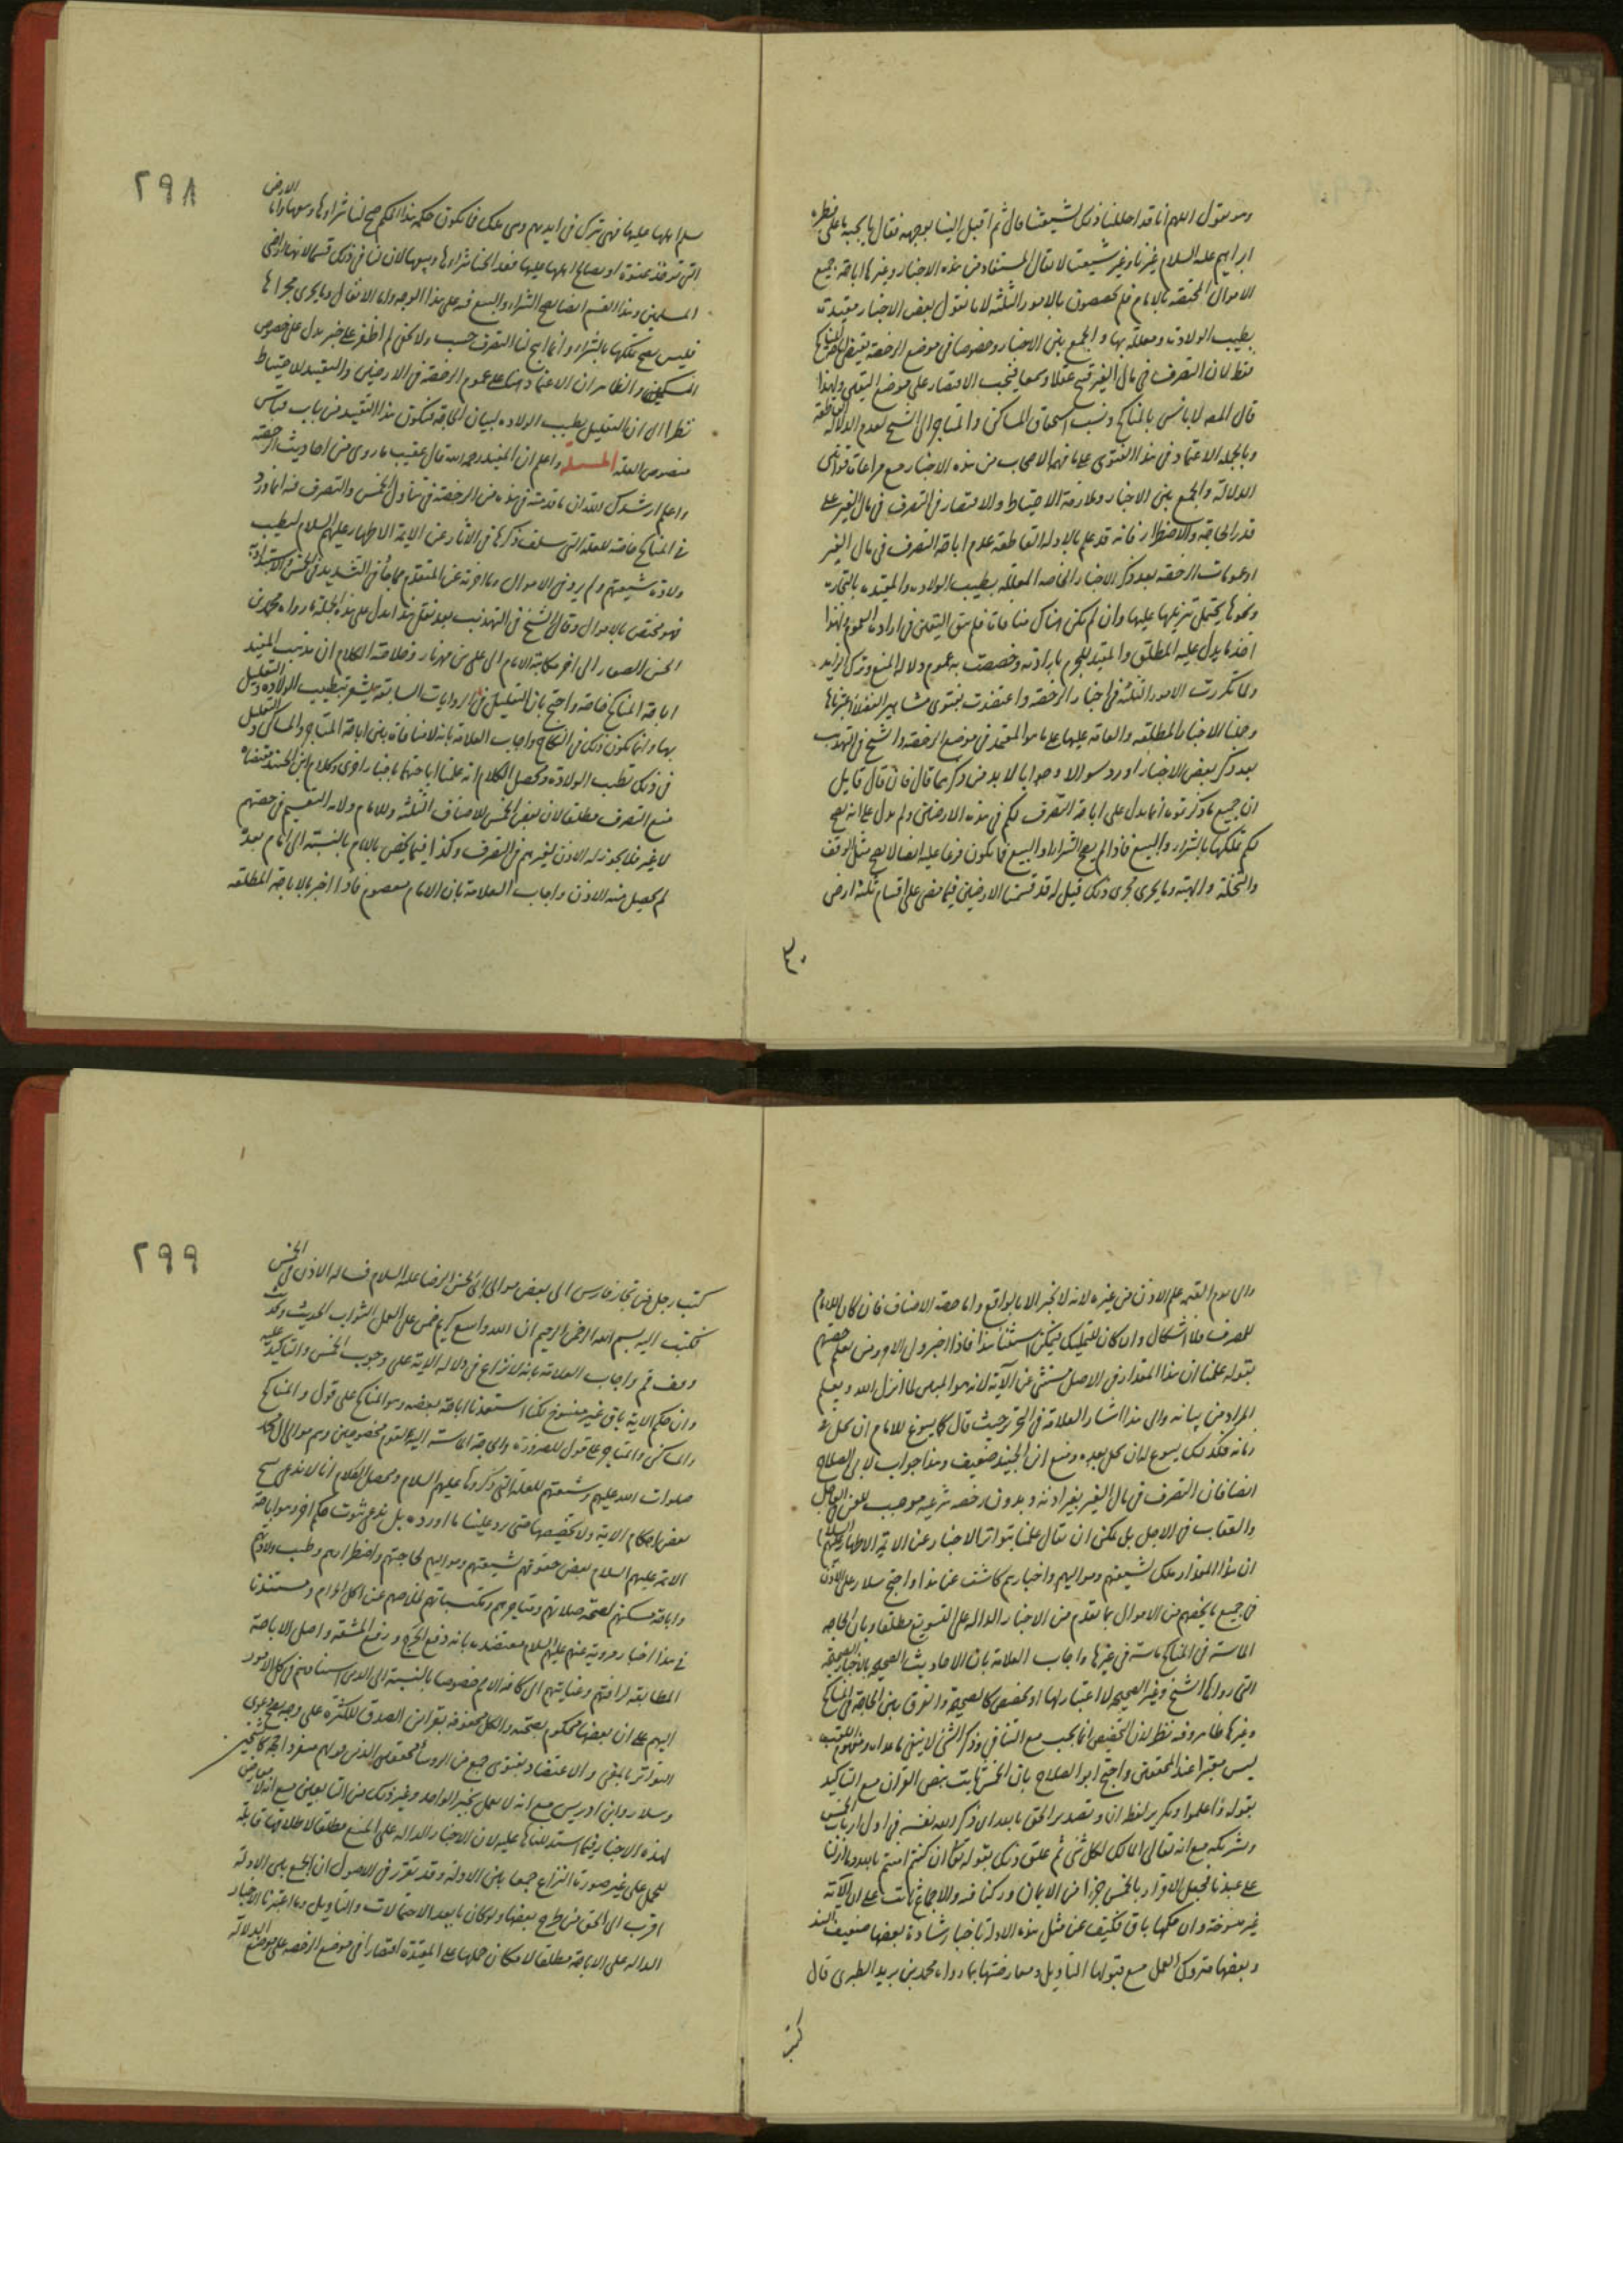 وهو يقول اللهم انا قد احللنا ذلك لشيعتنا قال ثم اقبل الينا بوجهه فقال يا نجية ما على فطرة
ابراهيم عليه السلام غيرنا وغير شيعتنا لا يقال المستفاد من هذه الاخبار وغيرها اباحة جميع
الاموال المختصة بالامام فلم تخصصون بالامور الثلثة لانا نقول بعض الاخبار مقيدة
بطيب الولادة ومعللة بها والجمع بين الاخبار وخصوصا في موضع الرخصة يقتضي
فقط لان التصرف في مال الغير قبيح عقلا وسمعا فيجب الاقتصار على موضع اليقين ولهذا
قال المص لا باس بالمناكح ونسب استحقاق المساكن والمتاجر الى الشيخ لعدم الدلالة القاطعة
وبالجملة الاعتماد في هذا الفتوى على ما فهم الاصحاب من هذه الاخبار مع مراعات قوانين
الدلالة والجمع بين الاخبار وملازمة الاحتياط والاقتصار في التصرف في مال الغير على
قدر الحاجة والاضطرار فانه قد علم بالادلة القاطعة عدم اباحة التصرف في مال الغير
وعمومات الرخصة بعد ذكر الاخبار الخاصة المعللة بطيب الولادة والمقيدة بالتجارة
ونحوها يحتمل تنزيلها عليها وان لم تكن هناك منافات فلم يبق اليقين في ارادة العموم ولهذا
اخذ ما يدل عليه المطلق والمقيد للجزم بارادته وخصصت به عموم دلالة المنع وترك الزايد
ولما تكررت الامور الثلثة في اخبار الرخصة واعتضدت بفتوى مشاهير الفضلاء اعتبرناها
وحملنا الاخبار المطلقة والعامة عليها على ما هو المعتمد في موضع الرخصة والشيخ في التهذيب
بعد ذكر بعض الاخبار اورد سوالا وجوابا لا بد من ذكرهما قال فان قال قايل
ان جميع ما ذكرتموه انما يدل على اباحة التصرف لكم في هذه الارضين ولم يدل على انه يصح
لكم تملكها بالشراء والبيع فاذا لم يصح الشراء والبيع فما يكون فرعا عليه ايضا لا يصح مثل الوقف
والنحلة والهبة وما يجري مجرى ذلك قيل له قد قسمنا الارضين فيما مضى على اقسام ثلثة ارض
٢٩٨
سلم اهلها عليها فهي تترك في ايديهم وهي ملك لهم فما يكون حكمه هذا الحكم صح لنا شراؤها وبيعها واما الارض
التي تؤخذ عنوة او يصالح اهلها عليها فقد ابحنا شراءها وبيعها لان لنا في ذلك قسما لانها اراضي
المسلمين وهذا القسم ايضا يصح الشراء والبيع فيه على هذا الوجه واما الانفال وما يجري مجراها
فليس يصح تملكها بالشراء وانما ابيح لنا التصرف حسب ولكن لم اظفر على خبر يدل على خصوص
المسكن والظاهر ان الاعتماد هنا على عموم الرخصة في الارضين والتقييد للاحتياط
نظرا الى ان التعليل بطيب الولادة لبيان الحاجة فيكون هذا التقييد من باب قياس
منصوص العلة المسئلة واعلم ان المفيد رحمه الله قال عقيب ما روى من احاديث الرخصة
واعلم ارشدك الله ان ما قدمته في هذه من الرخصة في تناول الخمس والتصرف فيه انما ورد
في المناكح خاصة للعلة التي سلف ذكرها في الاثار عن الايمة الاطهار عليهم السلام لتطيب
ولادة شيعتهم ولم يرد في الاموال وما اخرته عن المتقدم مما جاء في التشديد في الخمس والاستبداد به
فهو مختص بالاموال وقال الشيخ في التهذيب بعد نقل هذا يدل على هذه الجملة ما رواه محمد بن
الحسن الصفار الى اخر مكاتبة الامام الى علي بن مهزيار وخلاصة الكلام ان مذهب المفيد
اباحة المناكح خاصة واحتج بان التعليل في الروايات السابقة يشعر بتطييب الولادة والتعليل
بها وانما يكون ذلك في النكاح واجاب العلامة بانه لا منافاة بين اباحة المتاجر والمساكن والتعليل
في ذلك بطيب الولادة ومحصل الكلام انه علمنا اباحتهما باخبار اخرى وكلام ابن الجنيد مقتضاه
منع التصرف مطلقا لان بعض الخمس للاصناف الثلثة وللامام ولاية التقسيم في حصتهم
لا غير فلا يجوز له الاذن لغيرهم في التصرف وكذا فيما يختص بالامام بالنسبة الى امام بعده
لم يحصل منه الاذن واجاب العلامة بان الامام معصوم فاذا اخبر بالاباحة المطلقة
والى يوم القيمة علم الاذن من غيره لانه لا يخبر الا بالواقع واما حصة الاصناف فان كان اللام
للمصرف فلا اشكال وان كان للتمليك فيمكن استثنا هذا فاذا اخبر ولي الامر ومن يعلم حصتهم
بقوله علمنا ان هذا المقدار في الاصل مستثنى عن الآية لانه هو المبين لما انزل الله ويعلم
المراد من بيانه والى هذا اشار العلامة في التحرير حيث قال كما يسوغ للامام ان يحل في
زمانه فكذلك يسوغ له ان يحل بعده ومنع ابن الجنيد ضعيف وهذا جواب لابي الصلاح
ايضا فان التصرف في مال الغير بغير اذنه وبدون رخصة شرعية موجب للعن في العاجل
والعقاب في الاجل بل يمكن ان يقال علمنا بتواتر الاخبار عن الائمة الاطهار عليهم السلام
ان هذا المقدار ملك لشيعتهم ومواليهم واخبارهم كاشف عن هذا واحتج سلار على الاذن
في جميع ما يخصهم من الاموال بما تقدم من الاخبار الدالة على التسويغ مطلقا وبان الحاجة
الماسة في المناكح ماسة في غيرها واجاب العلامة بان الاحاديث الصحيحة بالاخبار الصحيحة
التي رواها الشيخ وغير الصحيحة لا اعتبار لها او تخصص كالصحيحة والفرق بين الحاجة في المناكح
وغيرها ظاهر وفيه نظر لان التخصيص انما يجب مع التنافي وذكر الشئ لا ينفي ما عداه ومفهوم اللقب
ليس معتبرا عند المحققين واحتج ابو الصلاح بان الخمس ثابت بنص القران مع التاكيد
بقوله واعلموا وتكرير لفظ ان وتصدير الحق بابعد ان ذكر الله نفسه في اول ارباب الخمس
وشريكه مع انه تعالى المالك لكل شئ ثم علق ذلك بقوله تعالى ان كنتم امنتم بالله وما انزلنا
على عبدنا فجعل الاقرار بالخمس جزءا من الايمان وركنا فيه والاجماع ثابت على ان الآية
غير منسوخة وان حكمها باق فكيف عن مثل هذه الادلة باخبار شاذة بعضها ضعيف السند
وبعضها متروك العمل مع قبولها التاويل ومعارضتها بما رواه محمد بن يزيد الطبري قال
كتب
٢٩٩
كتب رجل من تجار فارس الى بعض موالي ابي الحسن الرضا عليه السلام فساله الاذن في الخمس
فكتب اليه بسم الله الرحمن الرحيم ان الله واسع كريم ضمن على العمل الثواب الحديث
واجاب العلامة بانه لا نزاع في دلالة الاية على وجوب الخمس والتاكيد عليه
وان حكم الاية باق غير منسوخ لكنا استفدنا اباحة بعضه وهو المناكح على قول والمناكح
والمساكن والمتاجر على قول للضرورة والحاجة الماسة اليه لقوم مخصوصين وهم موالي ال محمد
صلوات الله عليهم وشيعتهم للعلة التي ذكروها عليهم السلام ومحصل الكلام انا لا ندعي نسخ
بعض احكام الاية ولا تخصيصها حتى يرد علينا ما اورده بل ندعي ثبوت حكم اخر وهو اباحة
الائمة عليهم السلام بعض حقوقهم لشيعتهم ومواليهم لحاجتهم واضطرارهم وطيب ولادتهم
واباحة مسكنهم لصحة صلاتهم ومتاجرهم ومكتسباتهم لخلاصهم عن اكل الحرام ومستندنا
في هذا اخبار مروية عنهم عليهم السلام معتضدة بانه دفع الحرج ورفع المشقة واصل الاباحة
المطابقة لرافتهم وعنايتهم الى كافة الامم خصوصا بالنسبة الى الذين في كل الامور
اليهم على ان بعضها محكوم بصحته والكل محفوفة بقراين الصدق للكثرة على وجه يصح دعوى
التواتر بالمعنى والاعتضاد بفتوى جمع من الروساء المحققين الذين قولهم بمنفرد الحجة كالشيخين
وسلار وابن ادريس مع انه لا يعمل بخبر الواحد وغير ذلك من التابعين مع انه لا معارض
لهذه الاخبار فيما استدللنا بها عليه لان الاخبار الدالة على المنع مطلقا لاطلاقها قابلة
للحمل على غير صورة النزاع جمعا بين الادلة وقد تقرر في الاصول ان الجمع بين الادلة
اقرب الى الحق من طرح بعضها ولو كان بابعد الاحتمالات والتاويل وما اعتبرنا الاخبار
الدالة على الاباحة مطلقا لامكان حملها على المقيدة اقتصارا في موضع الرخصة على موضع الدلالة